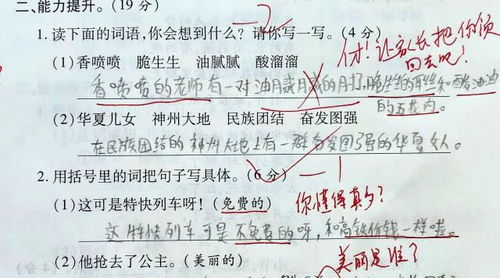 二、能力提升。(19 分)
1.读下面的词语,你会想到什么?请你写一写。(4 分)
(1)香喷喷 脆生生 油腻腻 酸溜溜
香喷喷的老师有一对油腻腻的
(2)华夏儿女 神州大地 民族团结 奋发图强
在民族团结的神州大地上有一群奋发图强的华夏女人。
2.用括号里的词把句子写具体。(6 分)
(1)这可是特快列车呀!(免费的)
这特快列车可是不免费的呀,和高铁价钱一样啦。
(2)他抢去了公主。(美丽的)
-2
你懂得真多?
美丽是谁?
让家长把你领
回去吧!